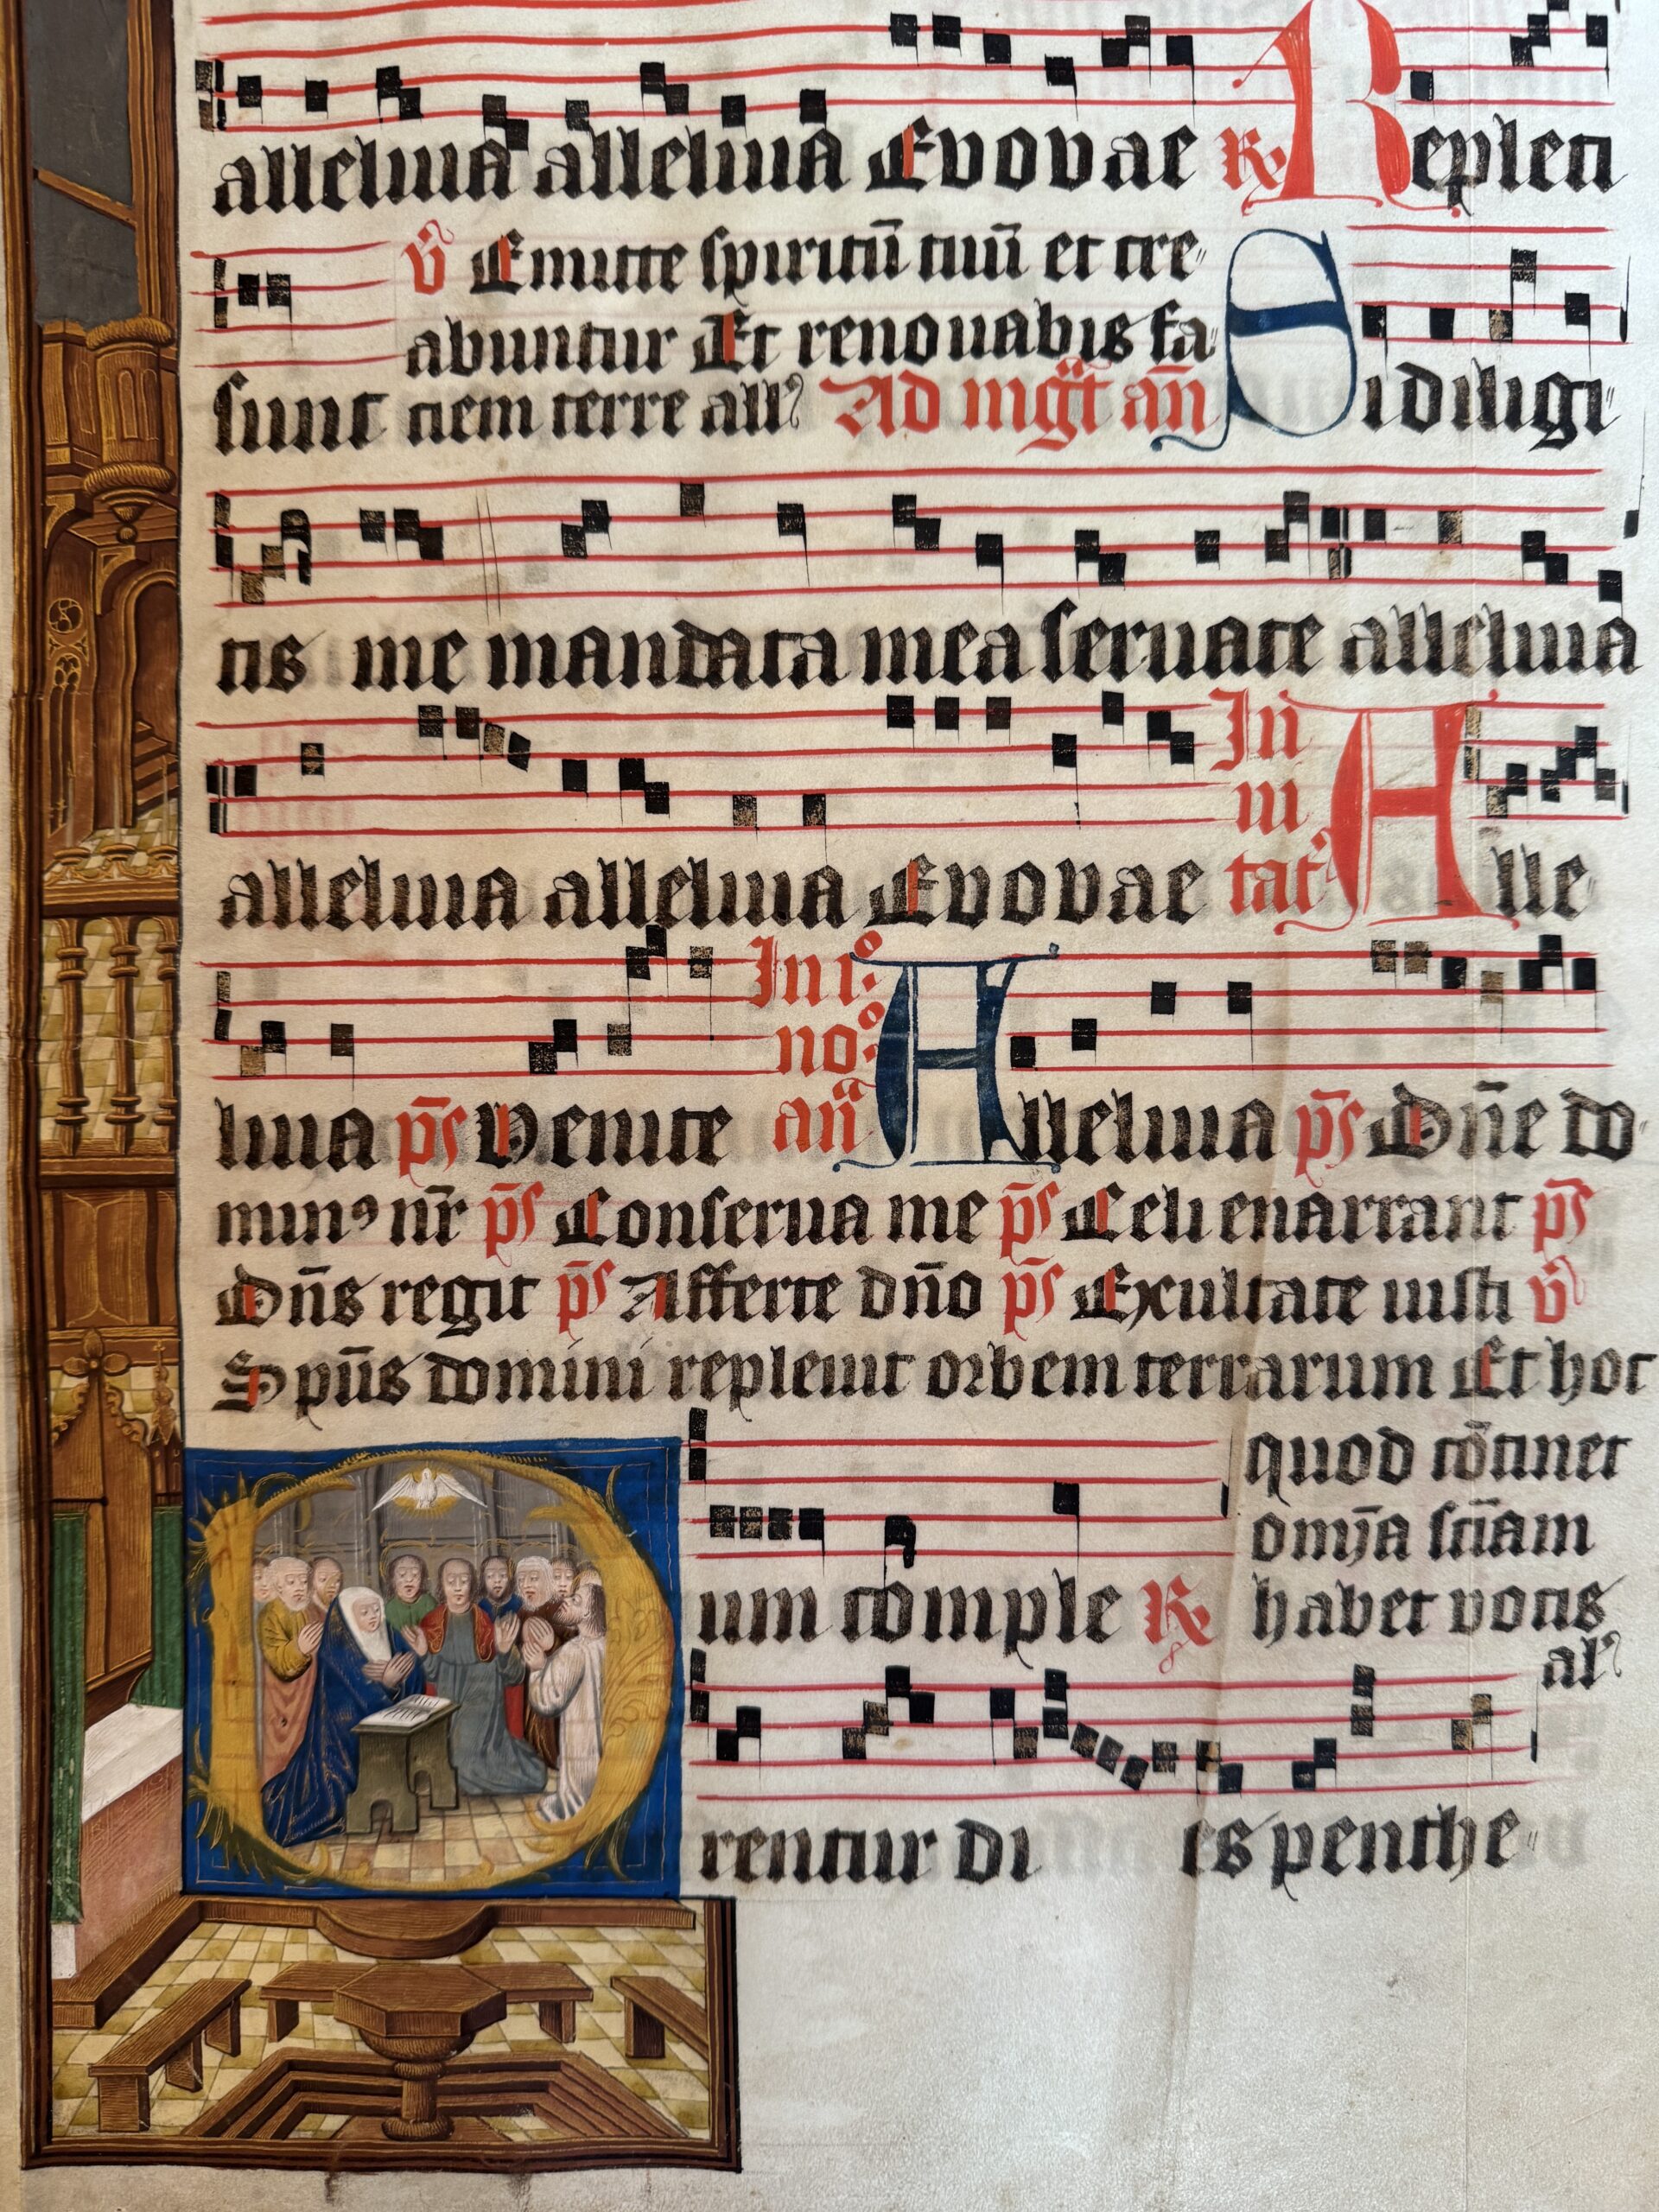 alleluia alleluia Evovae R Repleti
v Emitte spiritū tuū et cre
abuntur Et renouabis fa
sunt ciem terre all Ad mgt an Si diligi
tis me mandata mea seruate alleluia
alleluia alleluia Evovae Inuitat Alle
luia ps Venite In i no an Alleluia ps Dn̄e do
min9 nr̄ ps Conserua me ps Celi enarrant ps
Dn̄s regit ps Afferte dn̄o ps Exultate iusti v
Spūs domini repleuit orbem terrarum Et hoc
quod cōtinet
omīa sciam
um comple R habet vocis
al
rentur di es penthe